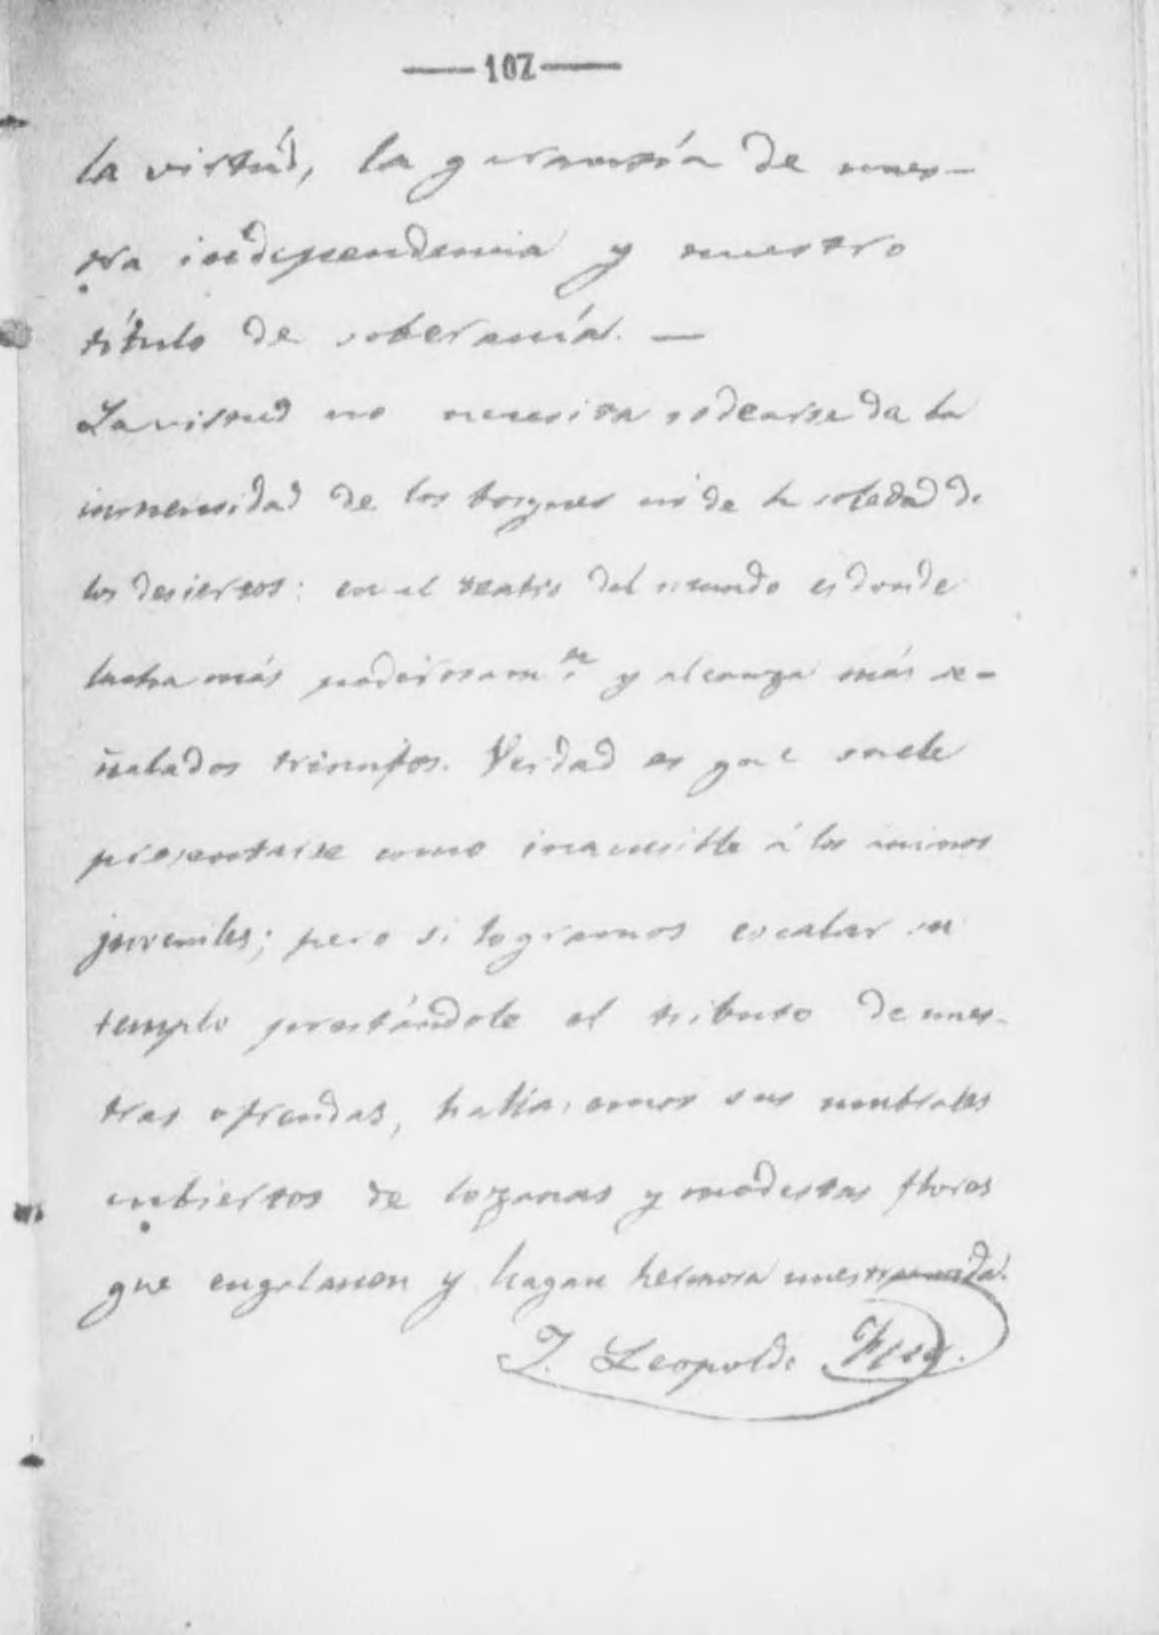 — 107 —
la virtúd, la garantía de nues-
tra independencia y nuestro
título de soberanía. —
La virtud no necesita rodearse da la
inmensidad de los bosques ni de la soledad de
los desiertos: en el teatro del mundo es donde
lucha más poderosam.te y alcanza más se-
ñalados triunfos. Verdad es que suele
presentarse como inaccesible á los ánimos
juveniles; pero si logramos escalar su
templo prestándole el tributo de nues-
tras ofrendas, hallaremos sus umbrales
cubiertos de lozanas y modestas flores
que engalanen y hagan hermosa nuestra vida.
J. Leopoldo